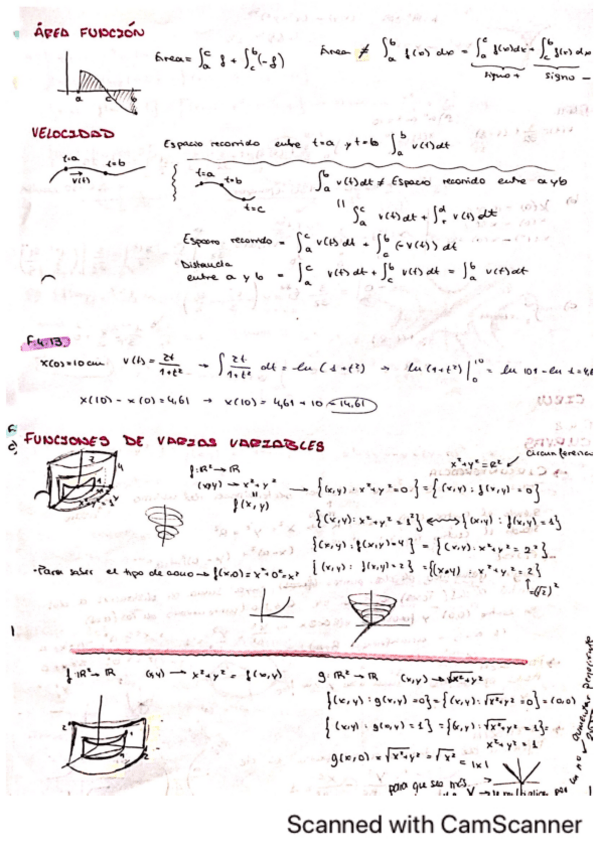 ÁREA FUNCIÓN
Área = ∫ₐᶜ f + ∫꜀ᵇ (-f)
Área ≠ ∫ₐᵇ f(x) dx = ∫ₐᶜ f(x)dx + ∫꜀ᵇ f(x) dx
signo + signo -
a c b
VELOCIDAD
Espacio recorrido entre t=a y t=b ∫ₐᵇ v(t)dt
t=a t=b
v(t)
t=a t=b t=c
∫ₐᵇ v(t)dt ≠ Espacio recorrido entre a y b
∫ₐᶜ v(t)dt +
Espacio recorrido = ∫ₐᶜ v(t) dt + ∫꜀ᵇ (-v(t)) dt
Distancia
entre a y b = ∫ₐᶜ v(t) dt + ∫꜀ᵇ v(t) dt = ∫ₐᵇ v(t) dt
F.4.13.
x(0)=10cm v(t) = 2t/1+t² → ∫ 2t/1+t² dt = ln (1+t²) → ln (1+t²)|₀¹⁰ = ln 101 - ln 1 =
x(10) - x(0) = 4,61 → x(10) = 4,61 + 10 = 14,61
FUNCIONES DE VARIAS VARIABLES
x²+y² = R² circunferencia
f: ℝ² → ℝ
(x,y) → x²+y²
f(x,y)
→ {(x,y) : x²+y² = 0} = {(x,y) : f(x,y) = 0}
{(x,y) : x²+y² = 1²} ↔ {(x,y) : f(x,y) = 1}
{(x,y) : f(x,y) = 4} = {(x,y) : x²+y² = 2²}
-Para saber el tipo de → f(x,0) = x²+0² = x²
{(x,y) : f(x,y) = 2} = {(x,y) : x²+y² = 2}
=(√2)²
1
f: ℝ² → ℝ (x,y) → x²+y² = f(x,y)
g: ℝ² → ℝ (x,y) → √x²+y²
{(x,y) : g(x,y) = 0} = {(x,y) : √x²+y² = 0} = (0,0)
{(x,y) : g(x,y) = 1} = {(x,y) : √x²+y² = 1} =
x²+y² = 1
g(x,0) = √x²+y² = √x² = |x|
para que sea más
Scanned with CamScanner